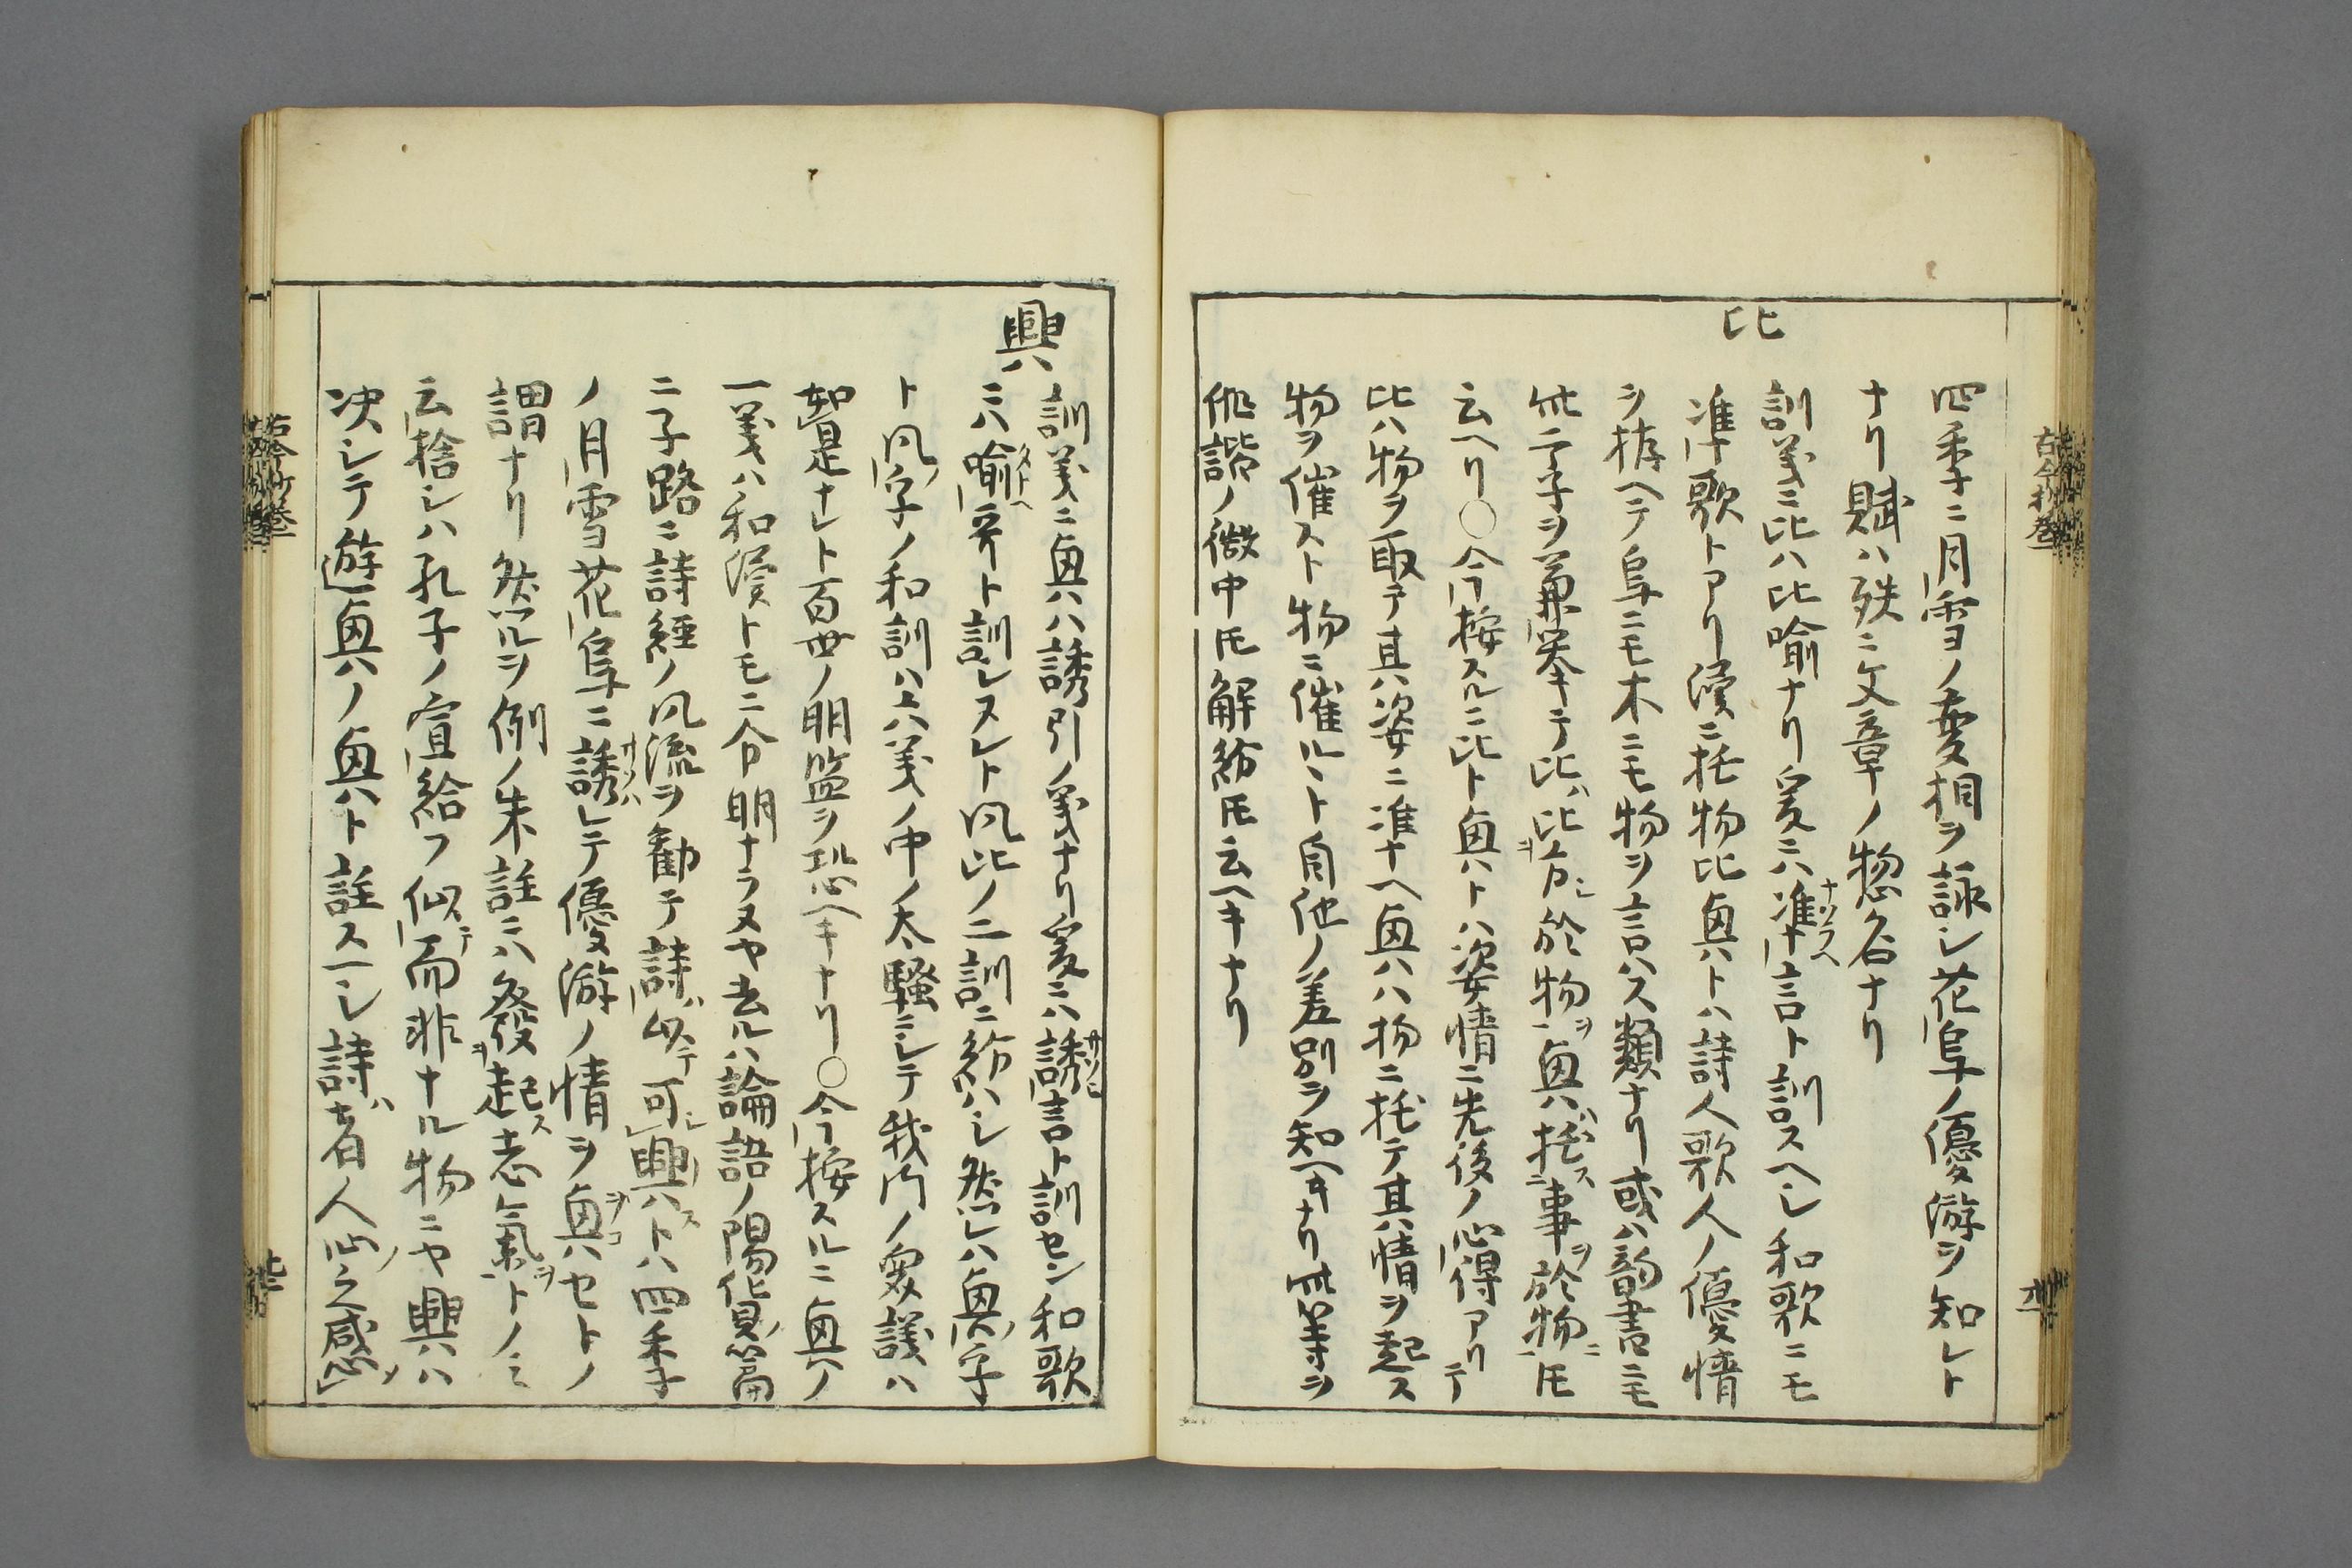 四季ニ月雪ノ變相ヲ詠シ花鳥ノ優游ヲ知レト
ナリ賦ハ殊ニ文章ノ惣名ナリ
比
訓義ニ比ハ比喩ナリ爰ニハ准言ト訓スヘシ和歌ニモ
准歌トアリ漢ニ托物比興トハ詩人歌人ノ優情
ヲ持ヘテ鳥ニモ木ニモ物ヲ言ハス類ナリ或ハ韵書ニモ
此二字ヲ兼挙キテ比ハ比方於物ヲ興ハ托事ヲ於物ニ𪜈
云ヘリ○今按スルニ比ト興トハ姿情ニ先後ノ心得アリテ
比ハ物ヲ取テ其姿ニ准ナヘ興ハ物ニ托テ其情ヲ起ス
物ヲ催スト物ニ催ルヽト自他ノ差別ヲ知ヘキナリ此等ヲ
俳諧ノ微中𪜈解紛𪜈云ヘキナリ
興
訓義ニ興ハ誘引ノ義ナリ爰ニハ誘言ト訓セン和歌
ニハ喩哥ト訓シヌレト風比ノ二訓ニ紛ハシ然レハ興ノ字
ト風ノ字ノ和訓ハ六義ノ中ノ大騒ニシテ我門ノ衆議ハ
如是ナレト百世ノ明鑑ヲ恐ヘキナリ○今按スルニ興ノ
一義ハ和漢トモニ分明ナラヌヤ去ルハ論語ノ陽貨篇
ニ子路ニ詩経ノ風流ヲ勸テ詩ハ以テ可興ストハ四季
ノ月雪花鳥ニ誘レテ優游ノ情ヲ興セトノ
謂ナリ然ルヲ例ノ朱註ニハ發起志氣ヲトノミ
云捨シハ孔子ノ宣給フ似テ而非ナル物ニヤ興ハ
决シテ遊興ノ興ト註スヘシ詩ハ者人心之感
古今抄巻一